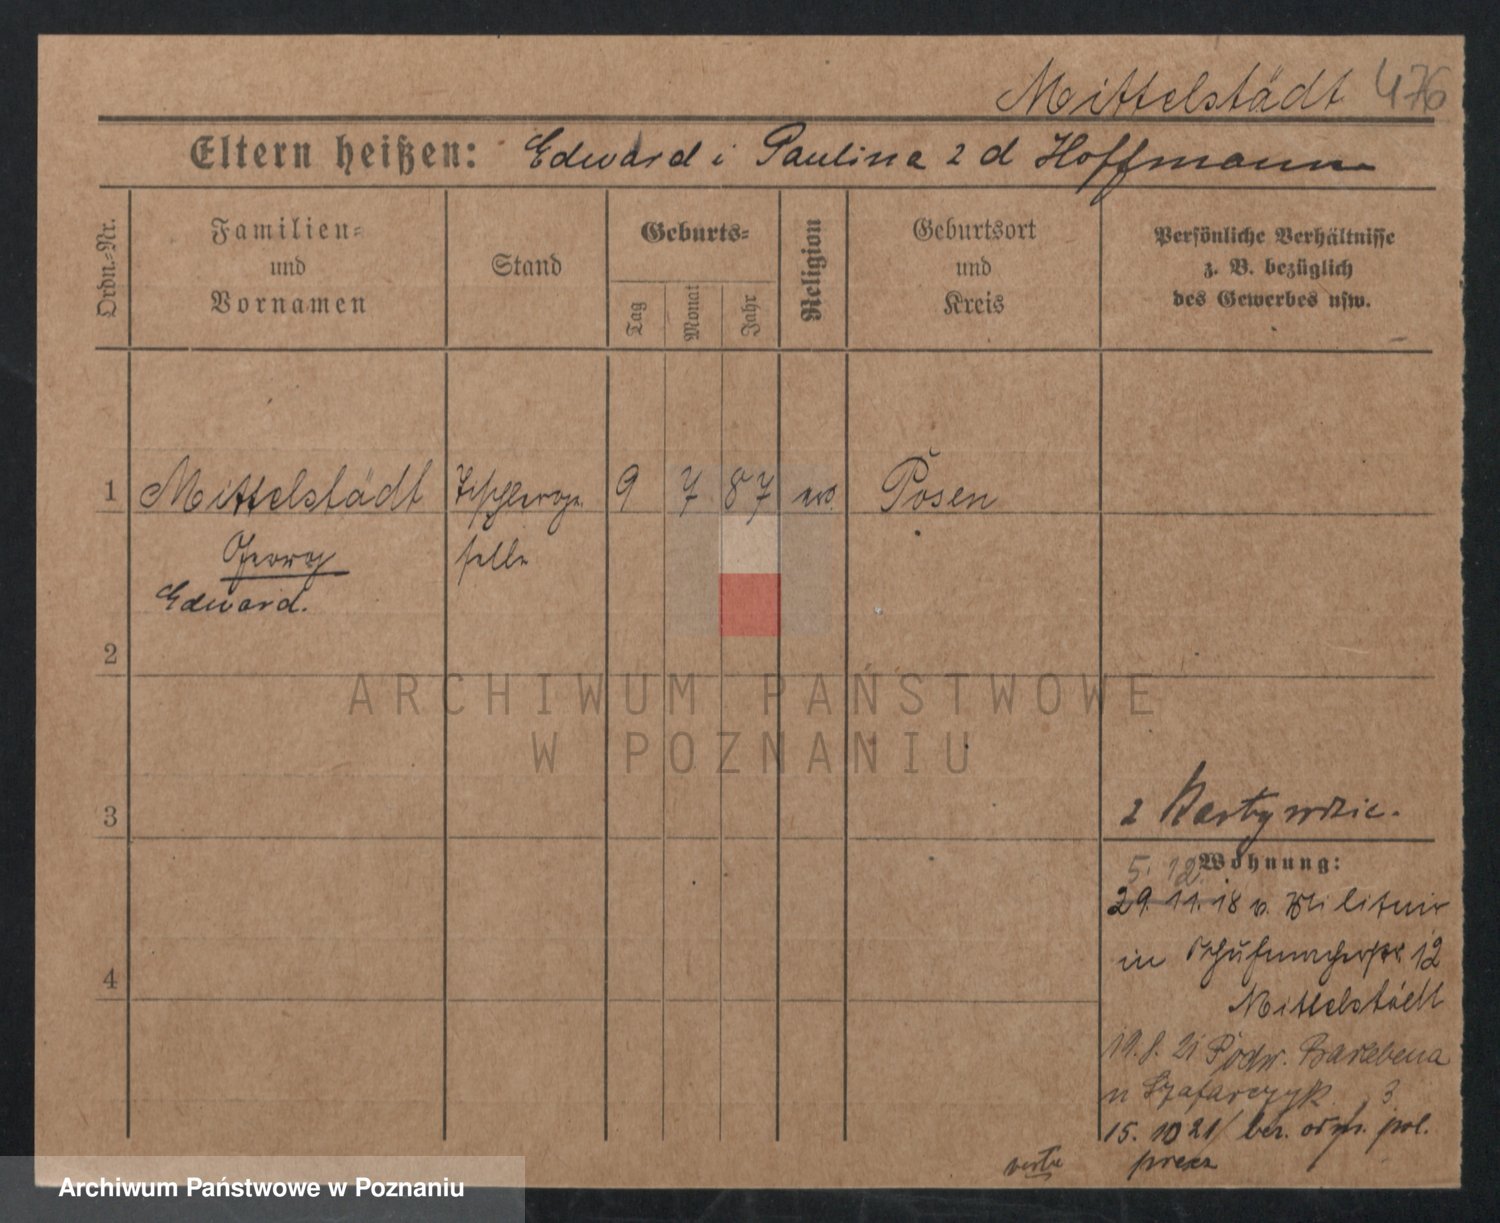 Mittelstädt 476
Eltern heißen: Edward i Paulina z d Hoffmann
Ordn.-Nr.
Familien-
und
Vornamen
Stand
Geburts-
Tag
Monat
Jahr
Religion
Geburtsort
und
Kreis
Persönliche Verhältnisse
z. B. bezüglich
des Gewerbes usw.
1 Mittelstädt Tischlerge- 9 7 87 ev. Posen
Georg selle
Edward.
2
ARCHIWUM PAŃSTWOWE
W POZNANIU
3
2 Karty
Wohnung:
5. 12.
29. 11. 18 v. Militair
in Schuhmacherstr. 12
Mittelstädt
19. 8. 21 Podw.
n Szafarczyk 3
15. 10 21 pol.
4
Archiwum Państwowe w Poznaniu